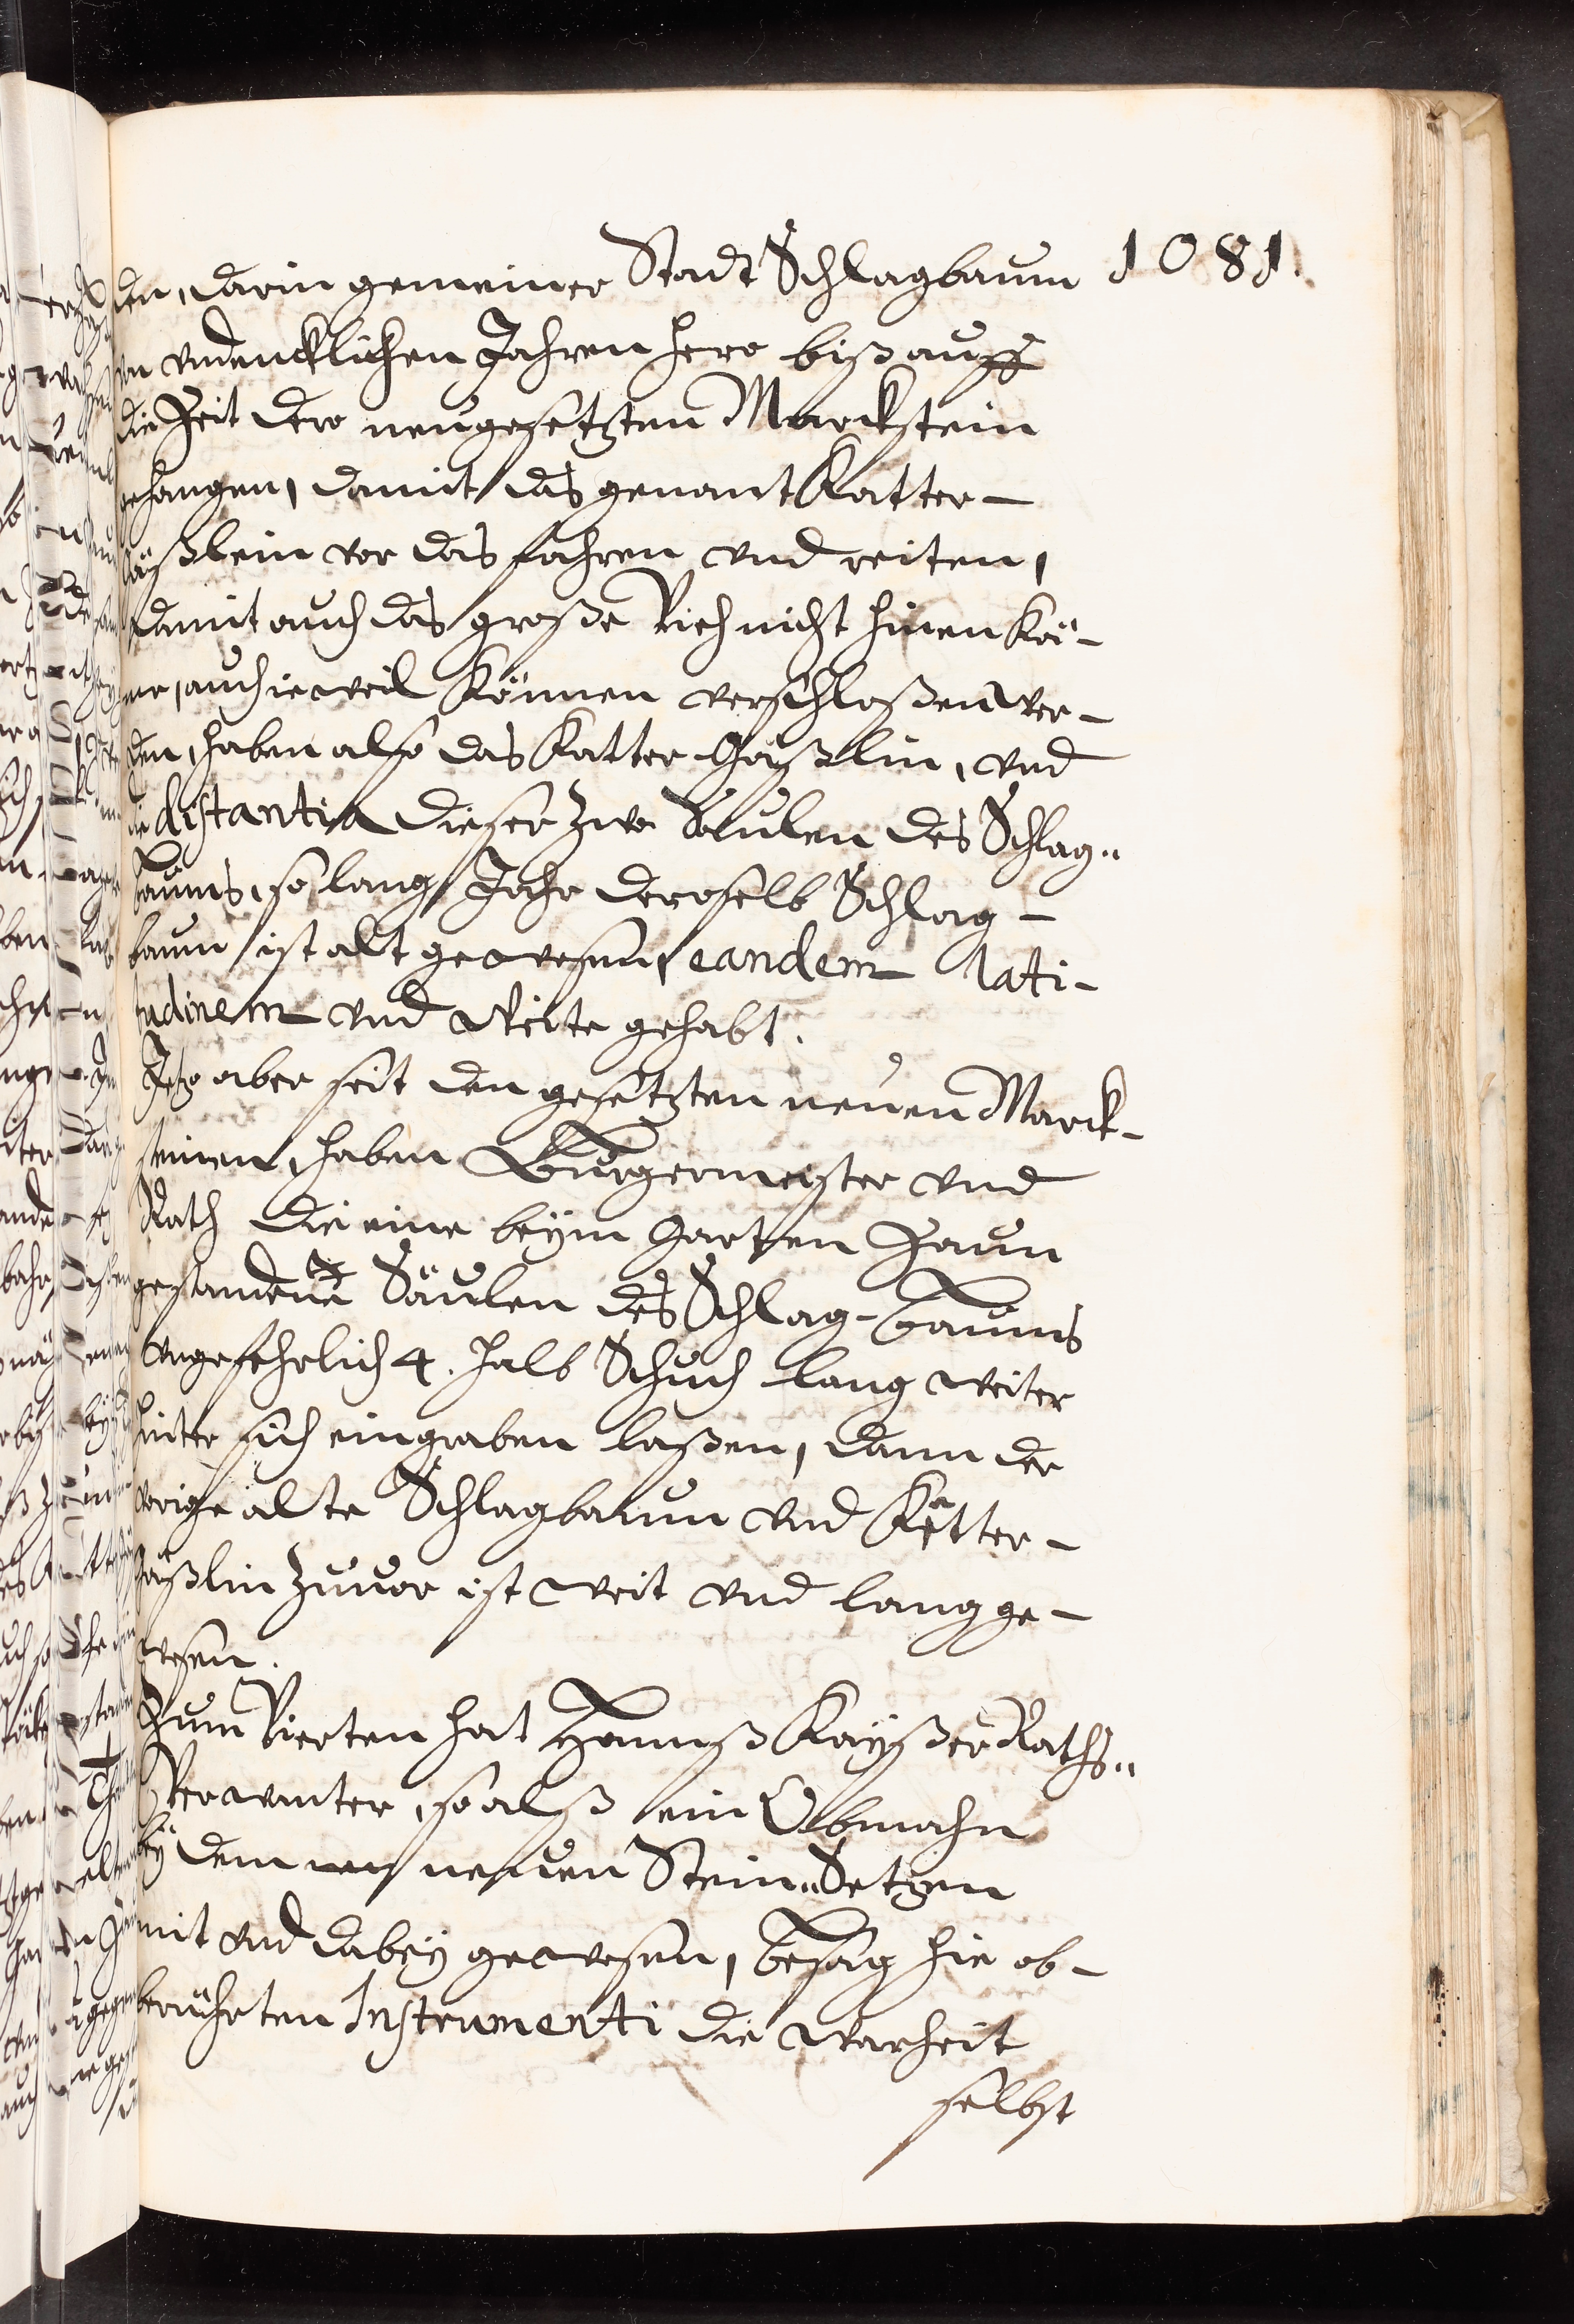 1081.
den, darin gemeiner Stadt Schlagbaum
von vndencklichen Jahren hero biß auff
die Zeit dero neugesetzten Marckstein
gehangen, damit das genant Katter-
gäßlein vor das fahren vnd reiten,
damit auch das große Vieh nicht hinen kö-
me, auch ie weil können verschloßen wer-
den, haben also das Katter Gäßlin, vnd
die distantia dieser zwo Säulen des Schlag-
baums, so lang Jahr deroselb Schlag-
baum ist alt gewesen, eandem lati-
tudinem vnd Weite gehabt.
Jetz aber seit den gesetzten neuen Marck-
steinen, haben Burgermeister vnd
Rath die eine beym Garten Zaun
gestandene Säulen des Schlag-baums
vngefehrlich 4. halb Schuch lang weiter
hinter sich eingraben laßen, dann der
vorige alte Schlagbaum vnd Katter-
gäßlin zuuor ist weit vnd lang ge-
wesen.
Zum Vierten hat Hannß Kayßer Raths-
Verwanter, so alß ein Obmahn
bey dem neuen Stein-Setzen
mit vnd dabey gewesen, besag hie ob-
berührten Instrumenti die Warheit
selbst